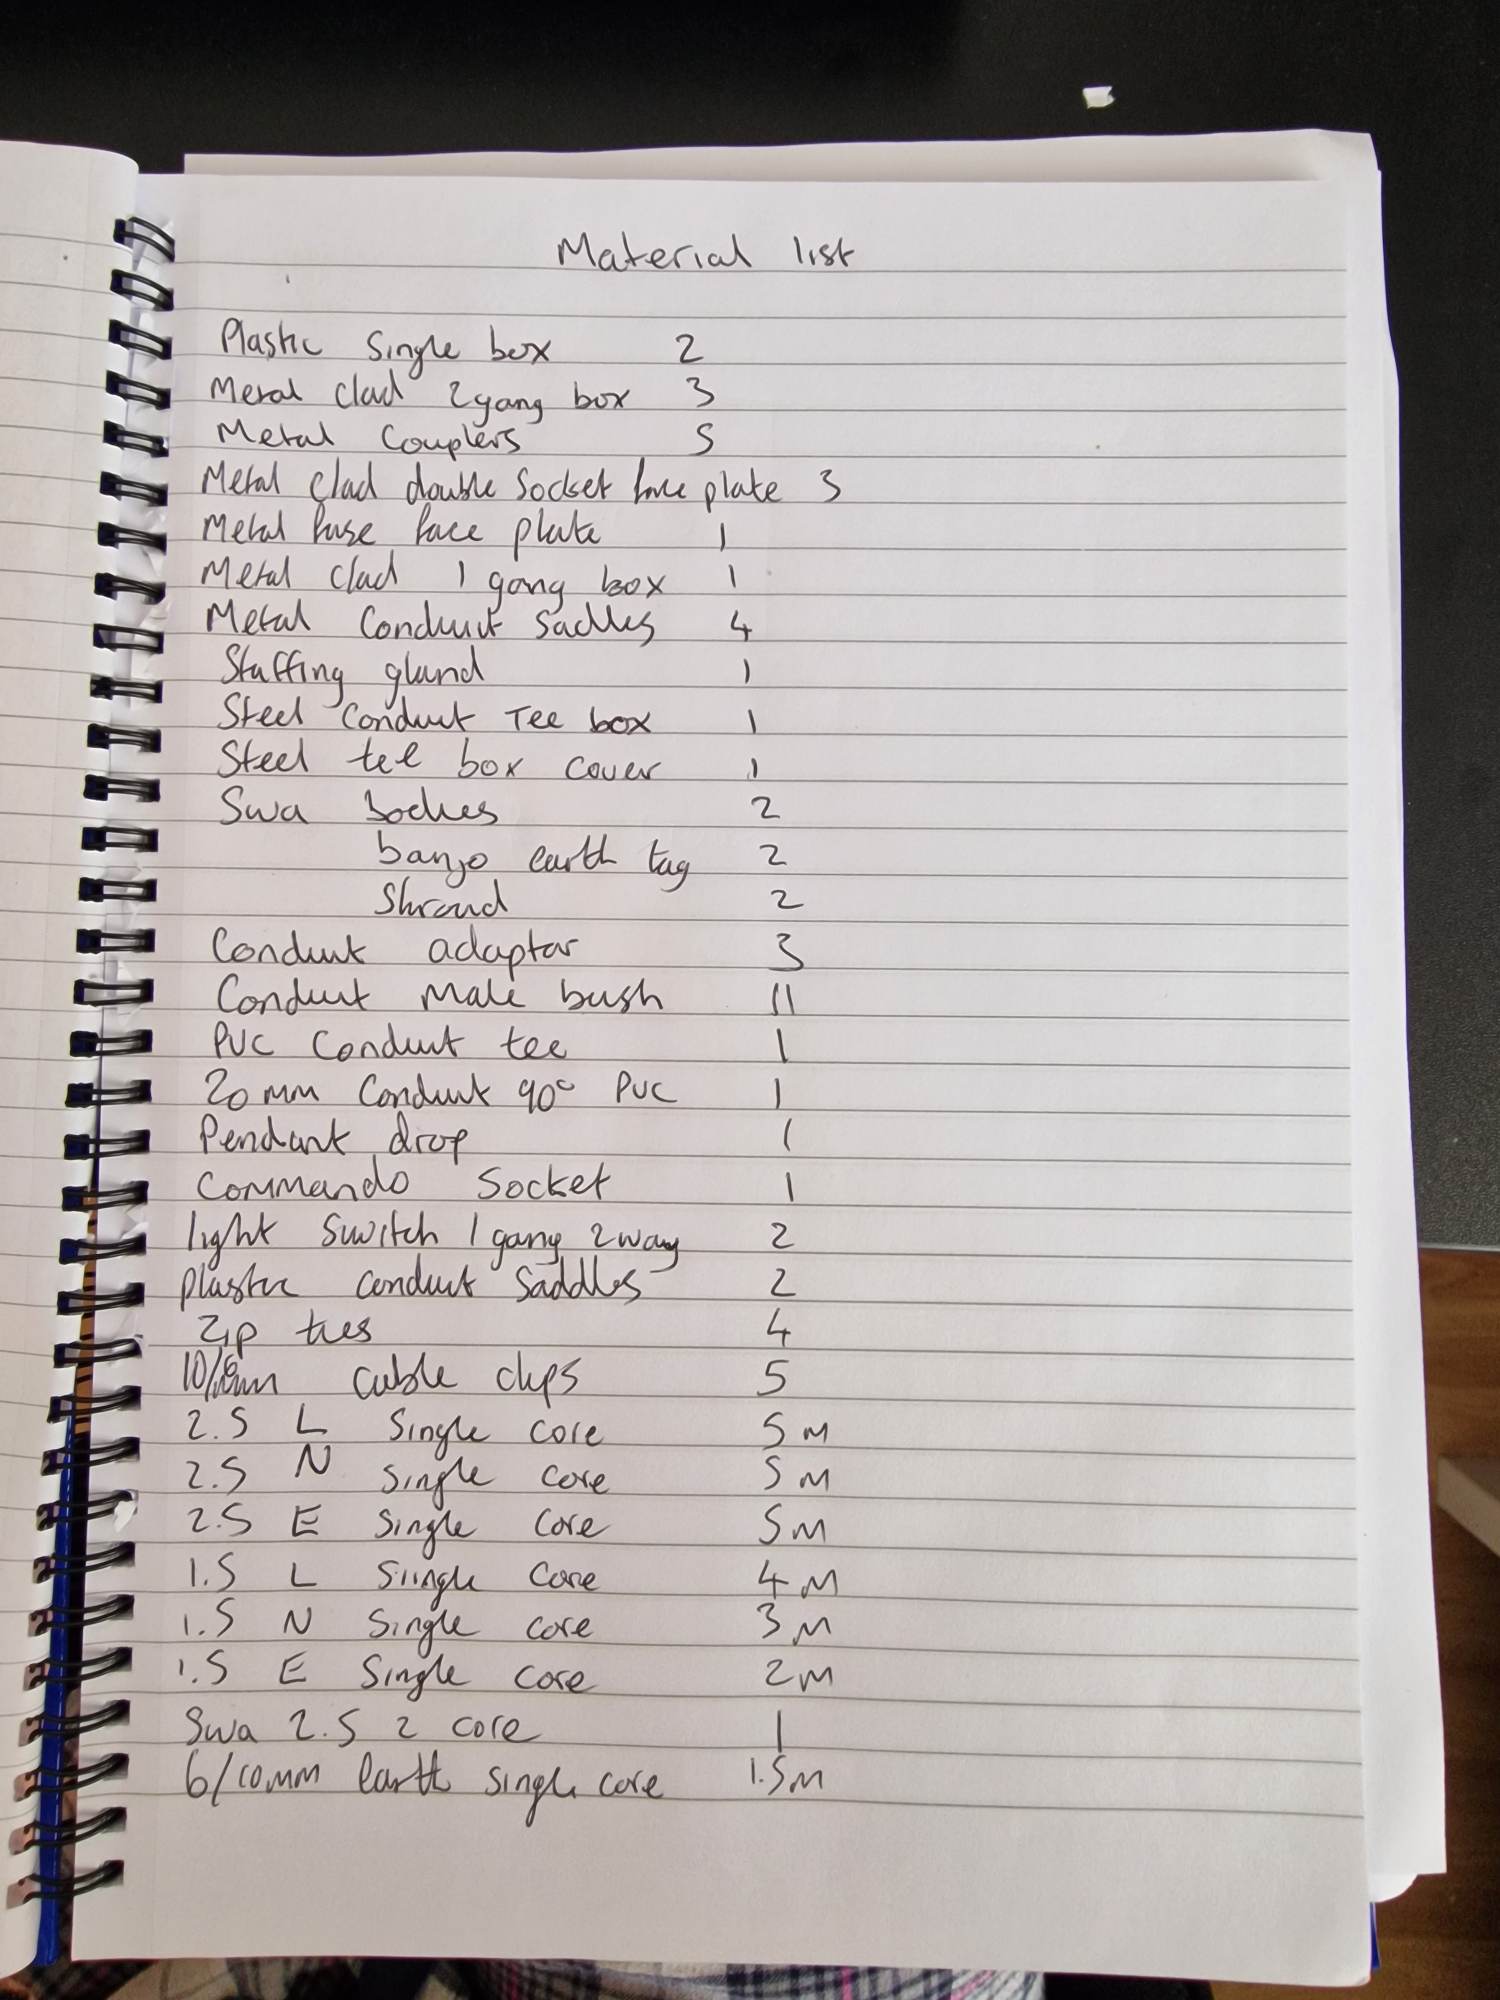 Material list
Plastic Single box 2
Metal clad 2 gang box 3
Metal Couplers 5
Metal clad double Socket face plate 3
Metal fuse face plate 1
Metal clad 1 gang box 1
Metal Conduit Saddles 4
Stuffing gland 1
Steel Conduit Tee box 1
Steel tee box cover 1
Swa Bodies 2
banjo earth tag 2
Shroud 2
Conduit adaptor 3
Conduit Male bush 11
PVC Conduit tee 1
20mm Conduit 90° PVC 1
Pendant drop 1
Commando Socket 1
light Switch 1 gang 2way 2
plastic conduit Saddles 2
Zip ties 4
cable clips 5
2.5 L Single core 5M
2.5 N Single core 5M
2.5 E Single Core 5M
1.5 L Single Core 4M
1.5 N Single core 3M
1.5 E Single core 2M
Swa 2.5 2 core 1
6/10mm earth single core 1.5M